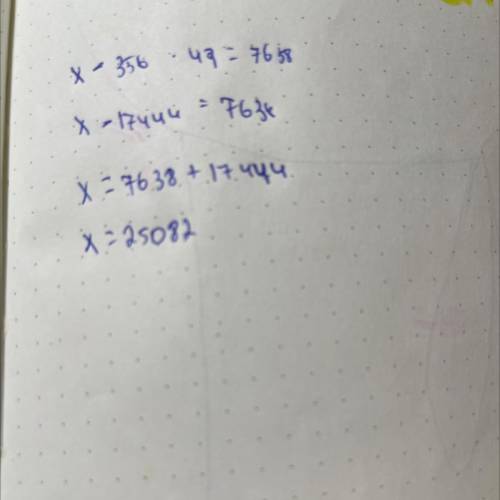 x - 356 · 49 = 7638
x - 17444 = 7638
x = 7638 + 17444
x = 25082